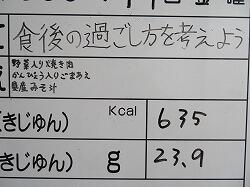 食後の過ごし方を考えよう
野菜入り焼き肉
かんぴょう入りごまあえ
具沢みそ汁
きじゅん) Kcal 635
きじゅん) g 23.9